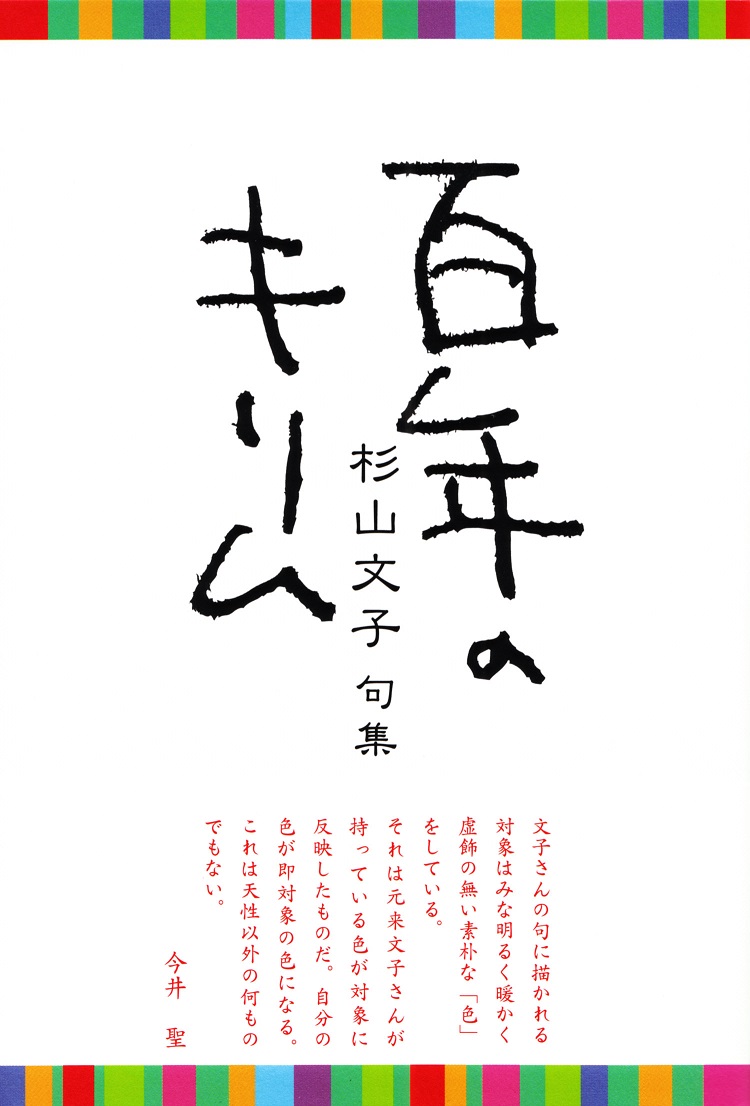 百年の
キリム
杉山文子 句集
文子さんの句に描かれる
対象はみな明るく暖かく
虚飾の無い素朴な「色」
をしている。
それは元来文子さんが
持っている色が対象に
反映したものだ。自分の
色が即対象の色になる。
これは天性以外の何もの
でもない。
今井 聖